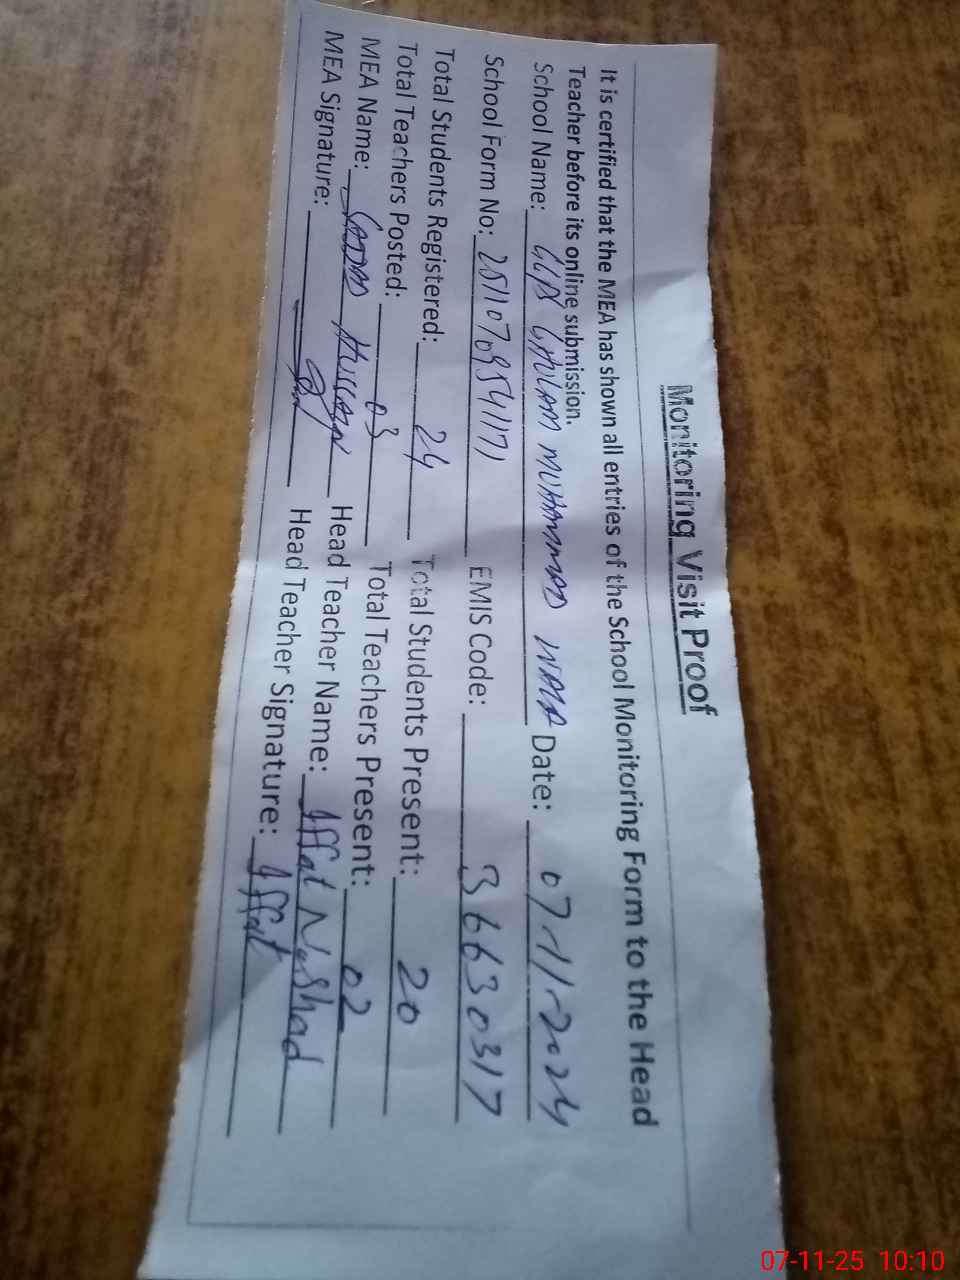 Monitoring Visit Proof
It is certified that the MEA has shown all entries of the School Monitoring Form to the Head
Teacher before its online submission.
School Name: GHULAM MUHAMMAD WALA Date: 07-11-2024
School Form No: EMIS Code: 36630317
Total Students Registered: 24 Total Students Present: 20
Total Teachers Posted: 03 Total Teachers Present: 02
MEA Name: Hussain Head Teacher Name: Iffat Noshad
MEA Signature: Head Teacher Signature: Iffat
07-11-25 10:10